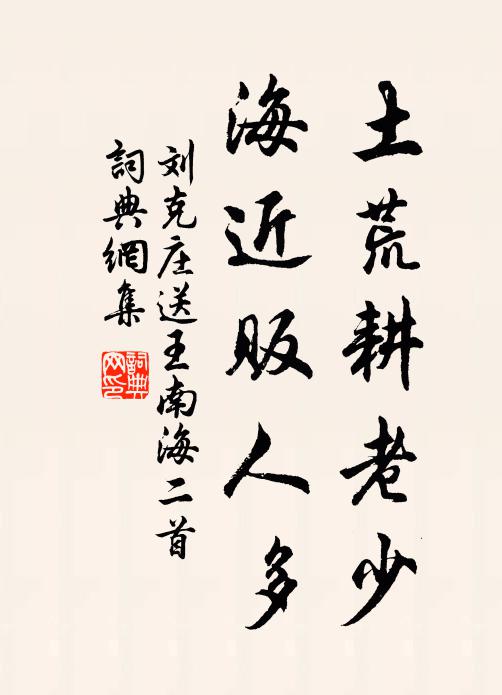 土荒耕老少
海近贩人多
刘克庄送王南海二首
詞典網集
詞典网印